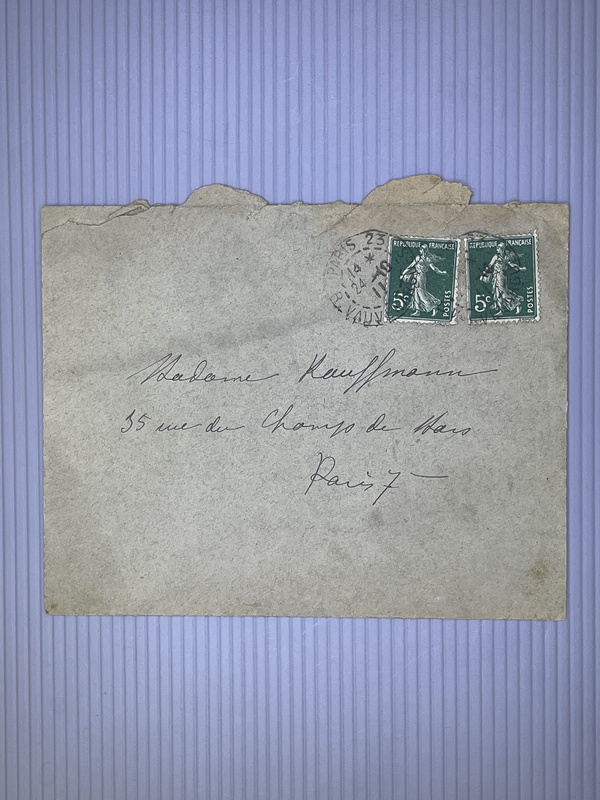 PARIS 23
14
24
*
10
11
VAU
REPUBLIQUE FRANÇAISE
5c
POSTES
REPUBLIQUE FRANÇAISE
5c
POSTES
Madame Kauffmann
35 rue du Champ de Mars
Paris 7